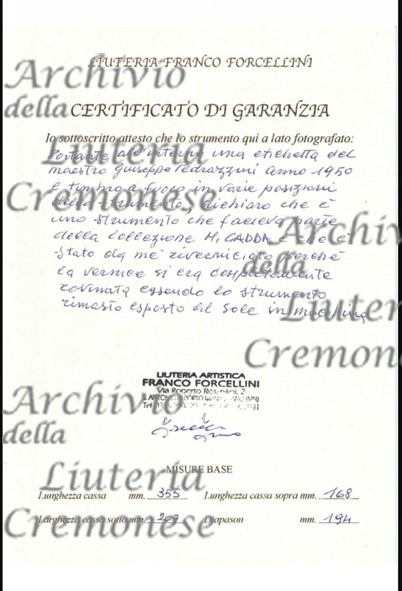 LIUTERIA FRANCO FORCELLINI
CERTIFICATO DI GARANZIA
Io sottoscritto attesto che lo strumento qui a lato fotografato:
Portante all'interno una etichetta del
maestro Giuseppe Pedrazzini anno 1950
e timbro a fuoco in varie posizioni
dello strumento, dichiaro che è
uno strumento che faceva parte
della collezione H. GADDA e che è
stato da me riverniciato perchè
la vernice si era completamente
rovinata essendo lo strumento
rimasto esposto al sole in macchina
LIUTERIA ARTISTICA
FRANCO FORCELLINI
Via Roberto
MISURE BASE
Lunghezza cassa mm. 355 Lunghezza cassa sopra mm. 168
Larghezza cassa sotto mm. Diapason mm. 194
Archivio
della
Liuteria
Cremonese
Archivio
Liuteria
Cremonese
Archivio
della
Liuteria
Cremonese